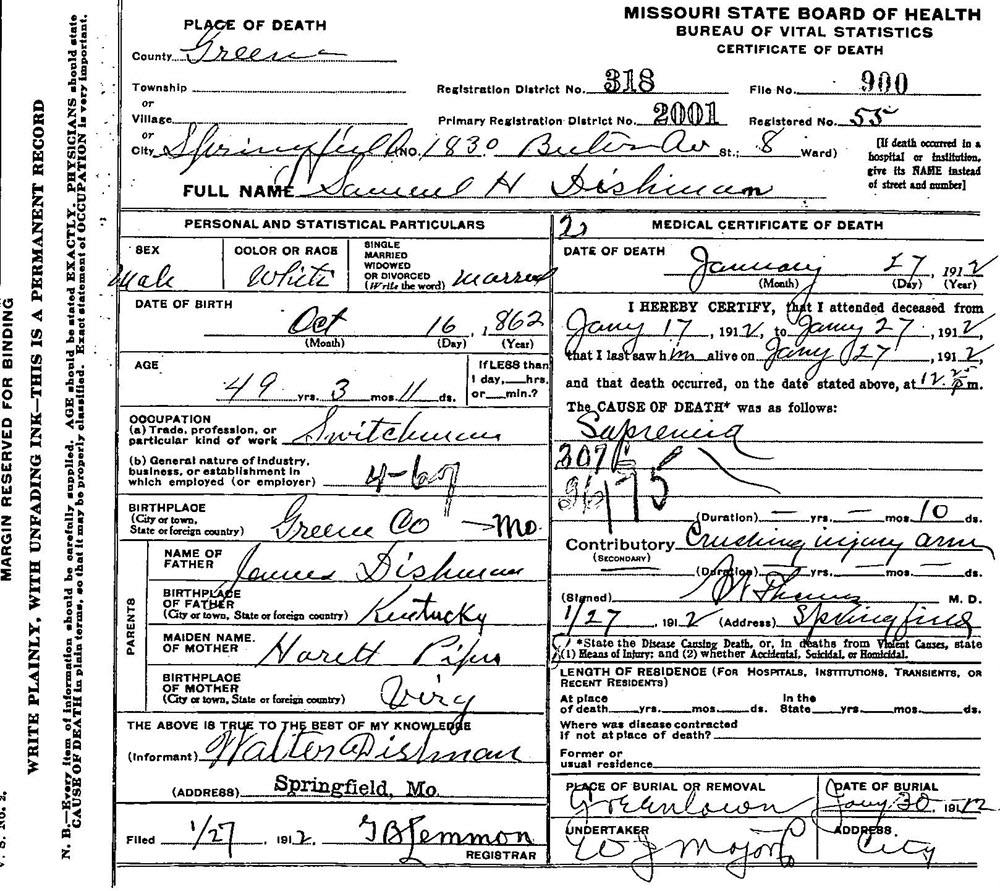 MISSOURI STATE BOARD OF HEALTH
BUREAU OF VITAL STATISTICS
CERTIFICATE OF DEATH
PLACE OF DEATH
County Greene
Township
or
Village
or
City Springfield No. 1830 Av St.; 8 Ward)
Registration District No. 318 File No. 900
Primary Registration District No. 2001 Registered No. 55
[If death occurred in a
hospital or institution,
give its NAME instead
of street and number]
FULL NAME Samuel H Dishman
PERSONAL AND STATISTICAL PARTICULARS
SEX
Male
COLOR OR RACE
White
SINGLE
MARRIED
WIDOWED
OR DIVORCED
(Write the word) Married
DATE OF BIRTH
Oct 16, 1862
(Month) (Day) (Year)
AGE
49 yrs. 3 mos. 11 ds.
If LESS than
1 day,___hrs.
or___min.?
OCCUPATION
(a) Trade, profession, or
particular kind of work Switchman
(b) General nature of industry,
business, or establishment in
which employed (or employer)
4-67
BIRTHPLACE
(City or town,
State or foreign country) Greene Co — Mo.
PARENTS
NAME OF
FATHER James Dishman
BIRTHPLACE
OF FATHER
(City or town, State or foreign country) Kentucky
MAIDEN NAME.
OF MOTHER
BIRTHPLACE
OF MOTHER
(City or town, State or foreign country) Virg
THE ABOVE IS TRUE TO THE BEST OF MY KNOWLEDGE
(Informant) Walter Dishman
(ADDRESS) Springfield, Mo.
Filed 1/27, 1912. Lemmon
REGISTRAR
2
MEDICAL CERTIFICATE OF DEATH
DATE OF DEATH
January 27, 1912
(Month) (Day) (Year)
I HEREBY CERTIFY, that I attended deceased from
Jany 17, 1912, to Jany 27, 1912
that I last saw him alive on Jany 27, 1912
and that death occurred, on the date stated above, at 12.25 pm.
The CAUSE OF DEATH* was as follows:
Sapremia
175
(Duration) — yrs. — mos. 10 ds.
Contributory Crushing injury arm
(SECONDARY)
(Duration) — yrs. — mos. — ds.
(Signed) M. D.
1/27, 1912 (Address) Springfield
*State the Disease Causing Death, or, in deaths from Violent Causes, state
(1) Means of Injury; and (2) whether Accidental, Suicidal, or Homicidal.
LENGTH OF RESIDENCE (FOR HOSPITALS, INSTITUTIONS, TRANSIENTS, OR
RECENT RESIDENTS)
At place In the
of death___yrs.___mos.___ds. State___yrs.___mos.___ds.
Where was disease contracted
If not at place of death?
Former or
usual residence
PLACE OF BURIAL OR REMOVAL
Greenlawn
DATE OF BURIAL
Jany 30, 1912
UNDERTAKER
W J Major
ADDRESS
City
MARGIN RESERVED FOR BINDING
WRITE PLAINLY, WITH UNFADING INK—THIS IS A PERMANENT RECORD
N. B.—Every item of information should be carefully supplied. AGE should be stated EXACTLY. PHYSICIANS should state
CAUSE OF DEATH in plain terms, so that it may be properly classified. Exact statement of OCCUPATION is very important.
V. S. No. 2.